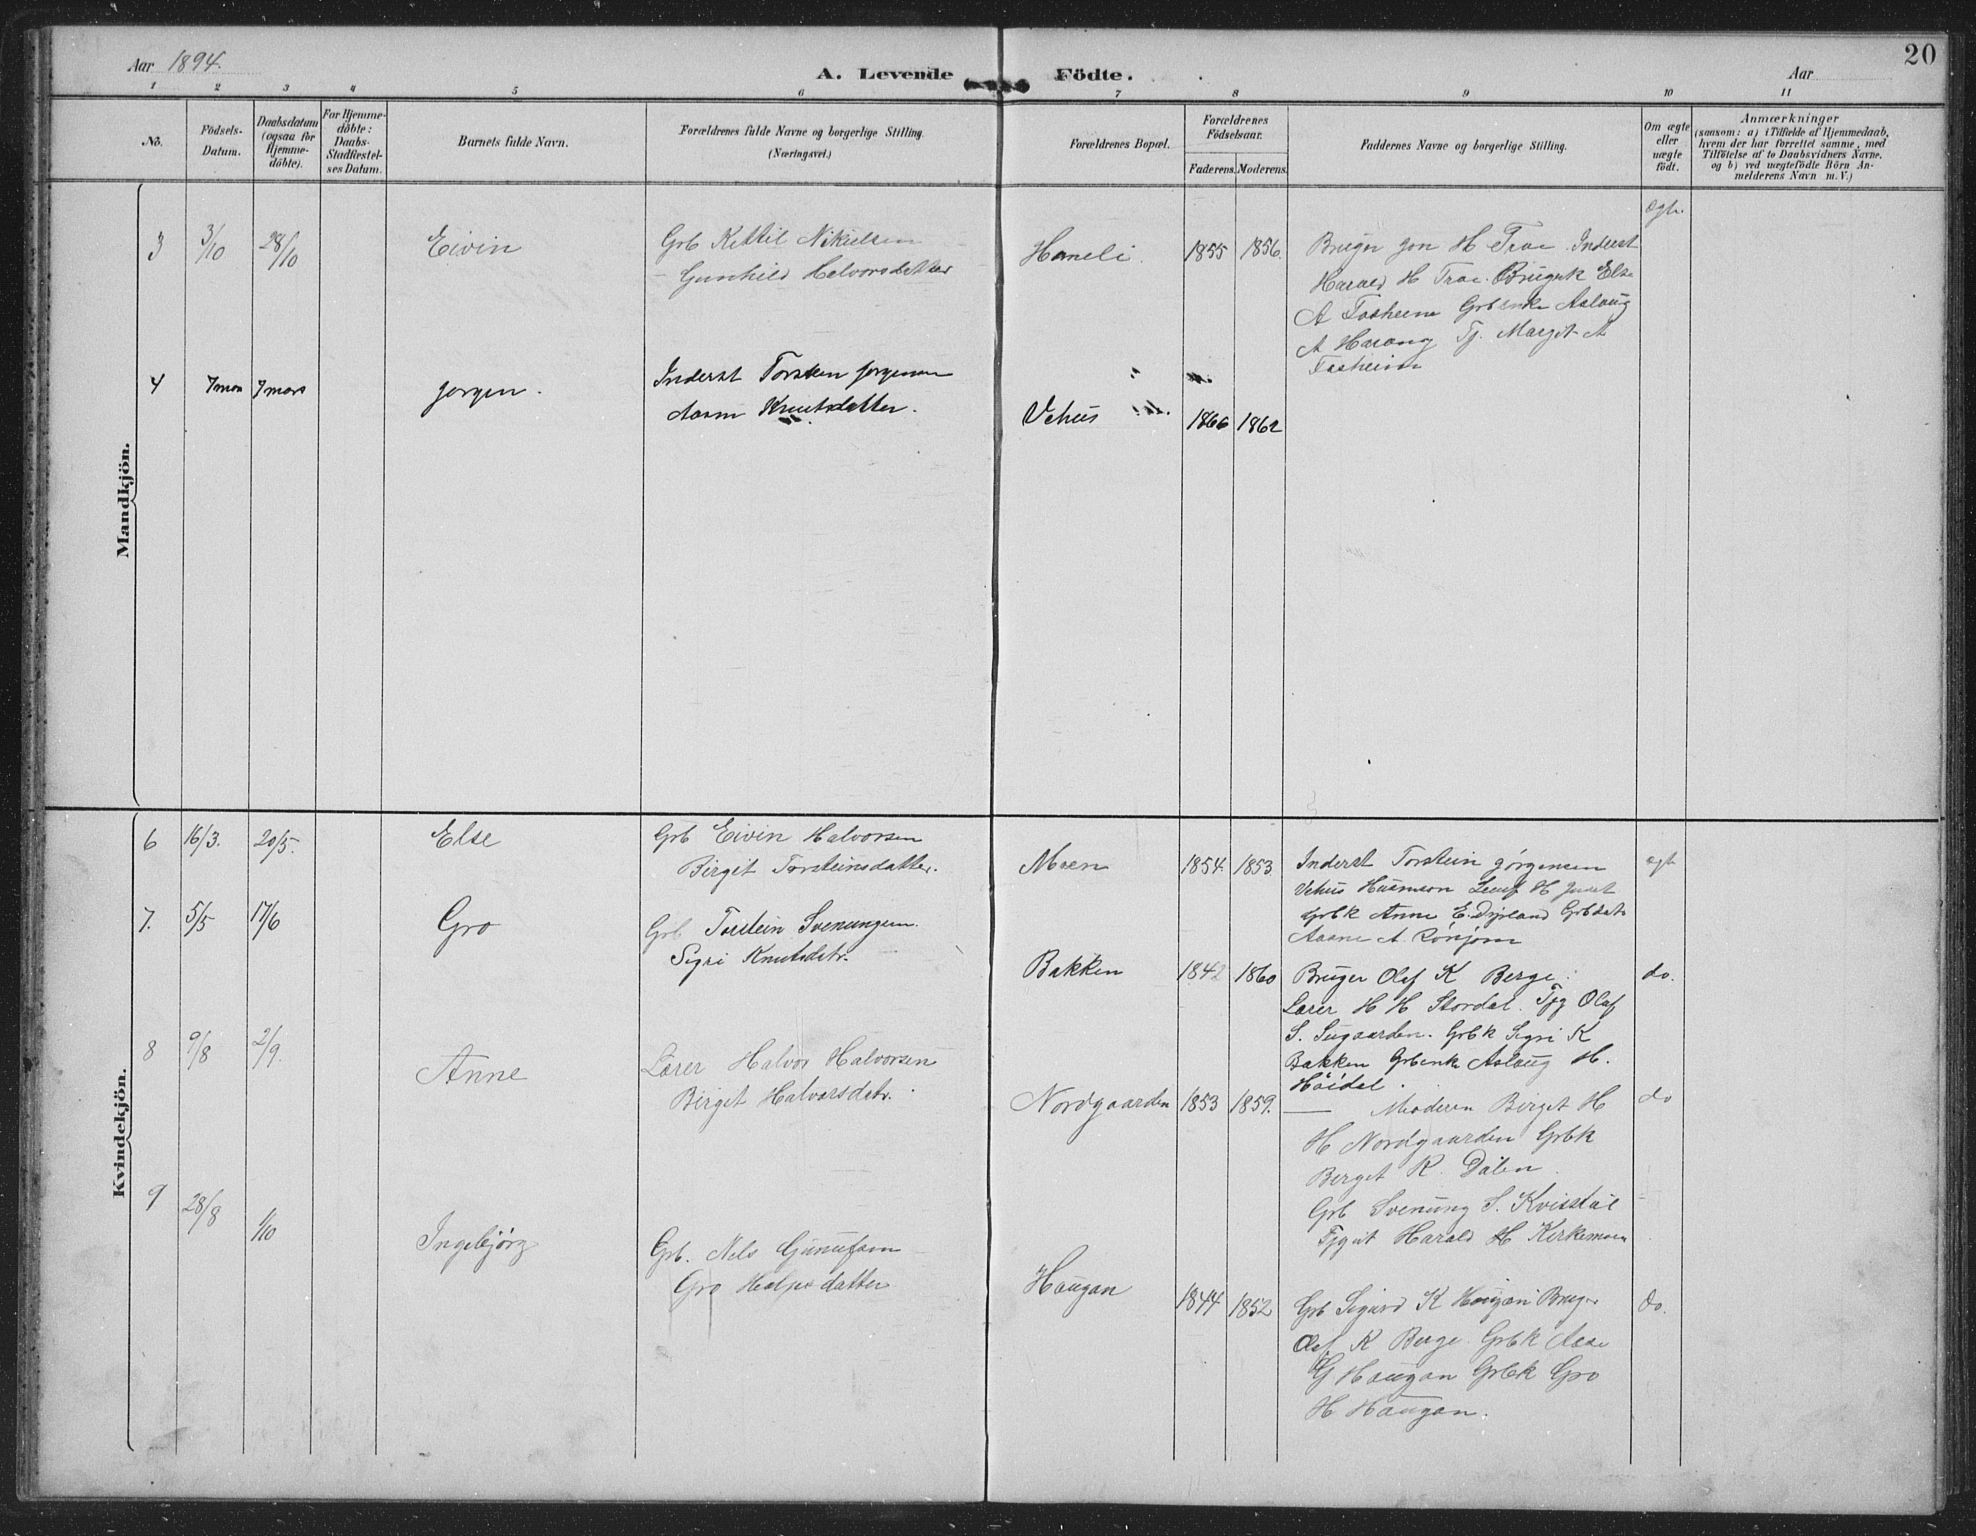 20
Aar 1894.
A. Levende Födte.
Aar
1 2 3 4 5 6 7 8 9 10 11
No.
Födsels-
Datum.
Daabsdatum
(ogsaa for
Hjemme-
döbte).
For Hjemme-
döbte:
Daabs-
Stadfæstel-
ses Datum.
Barnets fulde Navn.
Forældrenes fulde Navne og borgerlige Stilling.
(Næringsvei.)
Forældrenes Bopæl.
Forældrenes
Födselsaar.
Faderens. Moderens.
Faddernes Navne og borgerlige Stilling.
Om ægte
eller
uægte
födt.
Anmærkninger
(saasom: a) i Tilfælde af Hjemmedaab,
hvem der har forrettet samme, med
Tilföielse af to Daabsvidners Navne,
og b) ved uægtefödte Börn An-
melderens Navn m. V.)
Mandkjön.
3 3/10 28/10 Eivin
Grb Kittil Nikulsen
- Gunhild Halvorsdatter
Haneli. 1855 1856.
Bruger Jon H Trae. Inderst
Harald H Trae. Brugerk Else
A Fosheim Grbenke Aslaug
A Harang Tj. Margit A
Fosheim
ægte
4 7 mars 7 mars Jorgen.
Inderst Torsten Jorgensen
Aasne Knutsdatter.
Vehus 1866 1862
Kvindekjön.
6 16/3. 20/5. Else
Grb Eivin Halvorsen
Birget Torsteinsdatter.
Moen 1854. 1853.
Inderst Torstein Jørgensen
Vehus Husmson H
Grbk Anne E. Dyrland Grbdatr
Aasne A. Rønjom
ægt
7. 5/5 17/6 Gro
Grb Torstein Svenungsen.
Sigri Knutsdatr.
Bakken 1842 1860
Bruger Olaf K Berge.
Lærer H H Stordal. Tjg Olaf
S. Sugaarden. Grbk Sigri K
Bakken Grbenk Aslaug H.
Høidal.
do.
8 9/8 2/9. Anne
Lærer Halvor Halvorsen
Birget Halvorsdatr.
Nordgaarden 1853 1859.
— Moderen Birget H
H Nordgaarden Grbk
Berget K. Dalen.
Grb Svenung S. Kvisstal
Tjgut Harald H Kirkemoen
do
9 28/8 1/10 Ingebjørg
Grb. Nels
Gro datter
Haugan 1844 1852
Grb Sigurd K Haugan Bruger
Olaf K Berge. Grbk Aase
G Haugan Grbk Gro
H Haugan.
do.